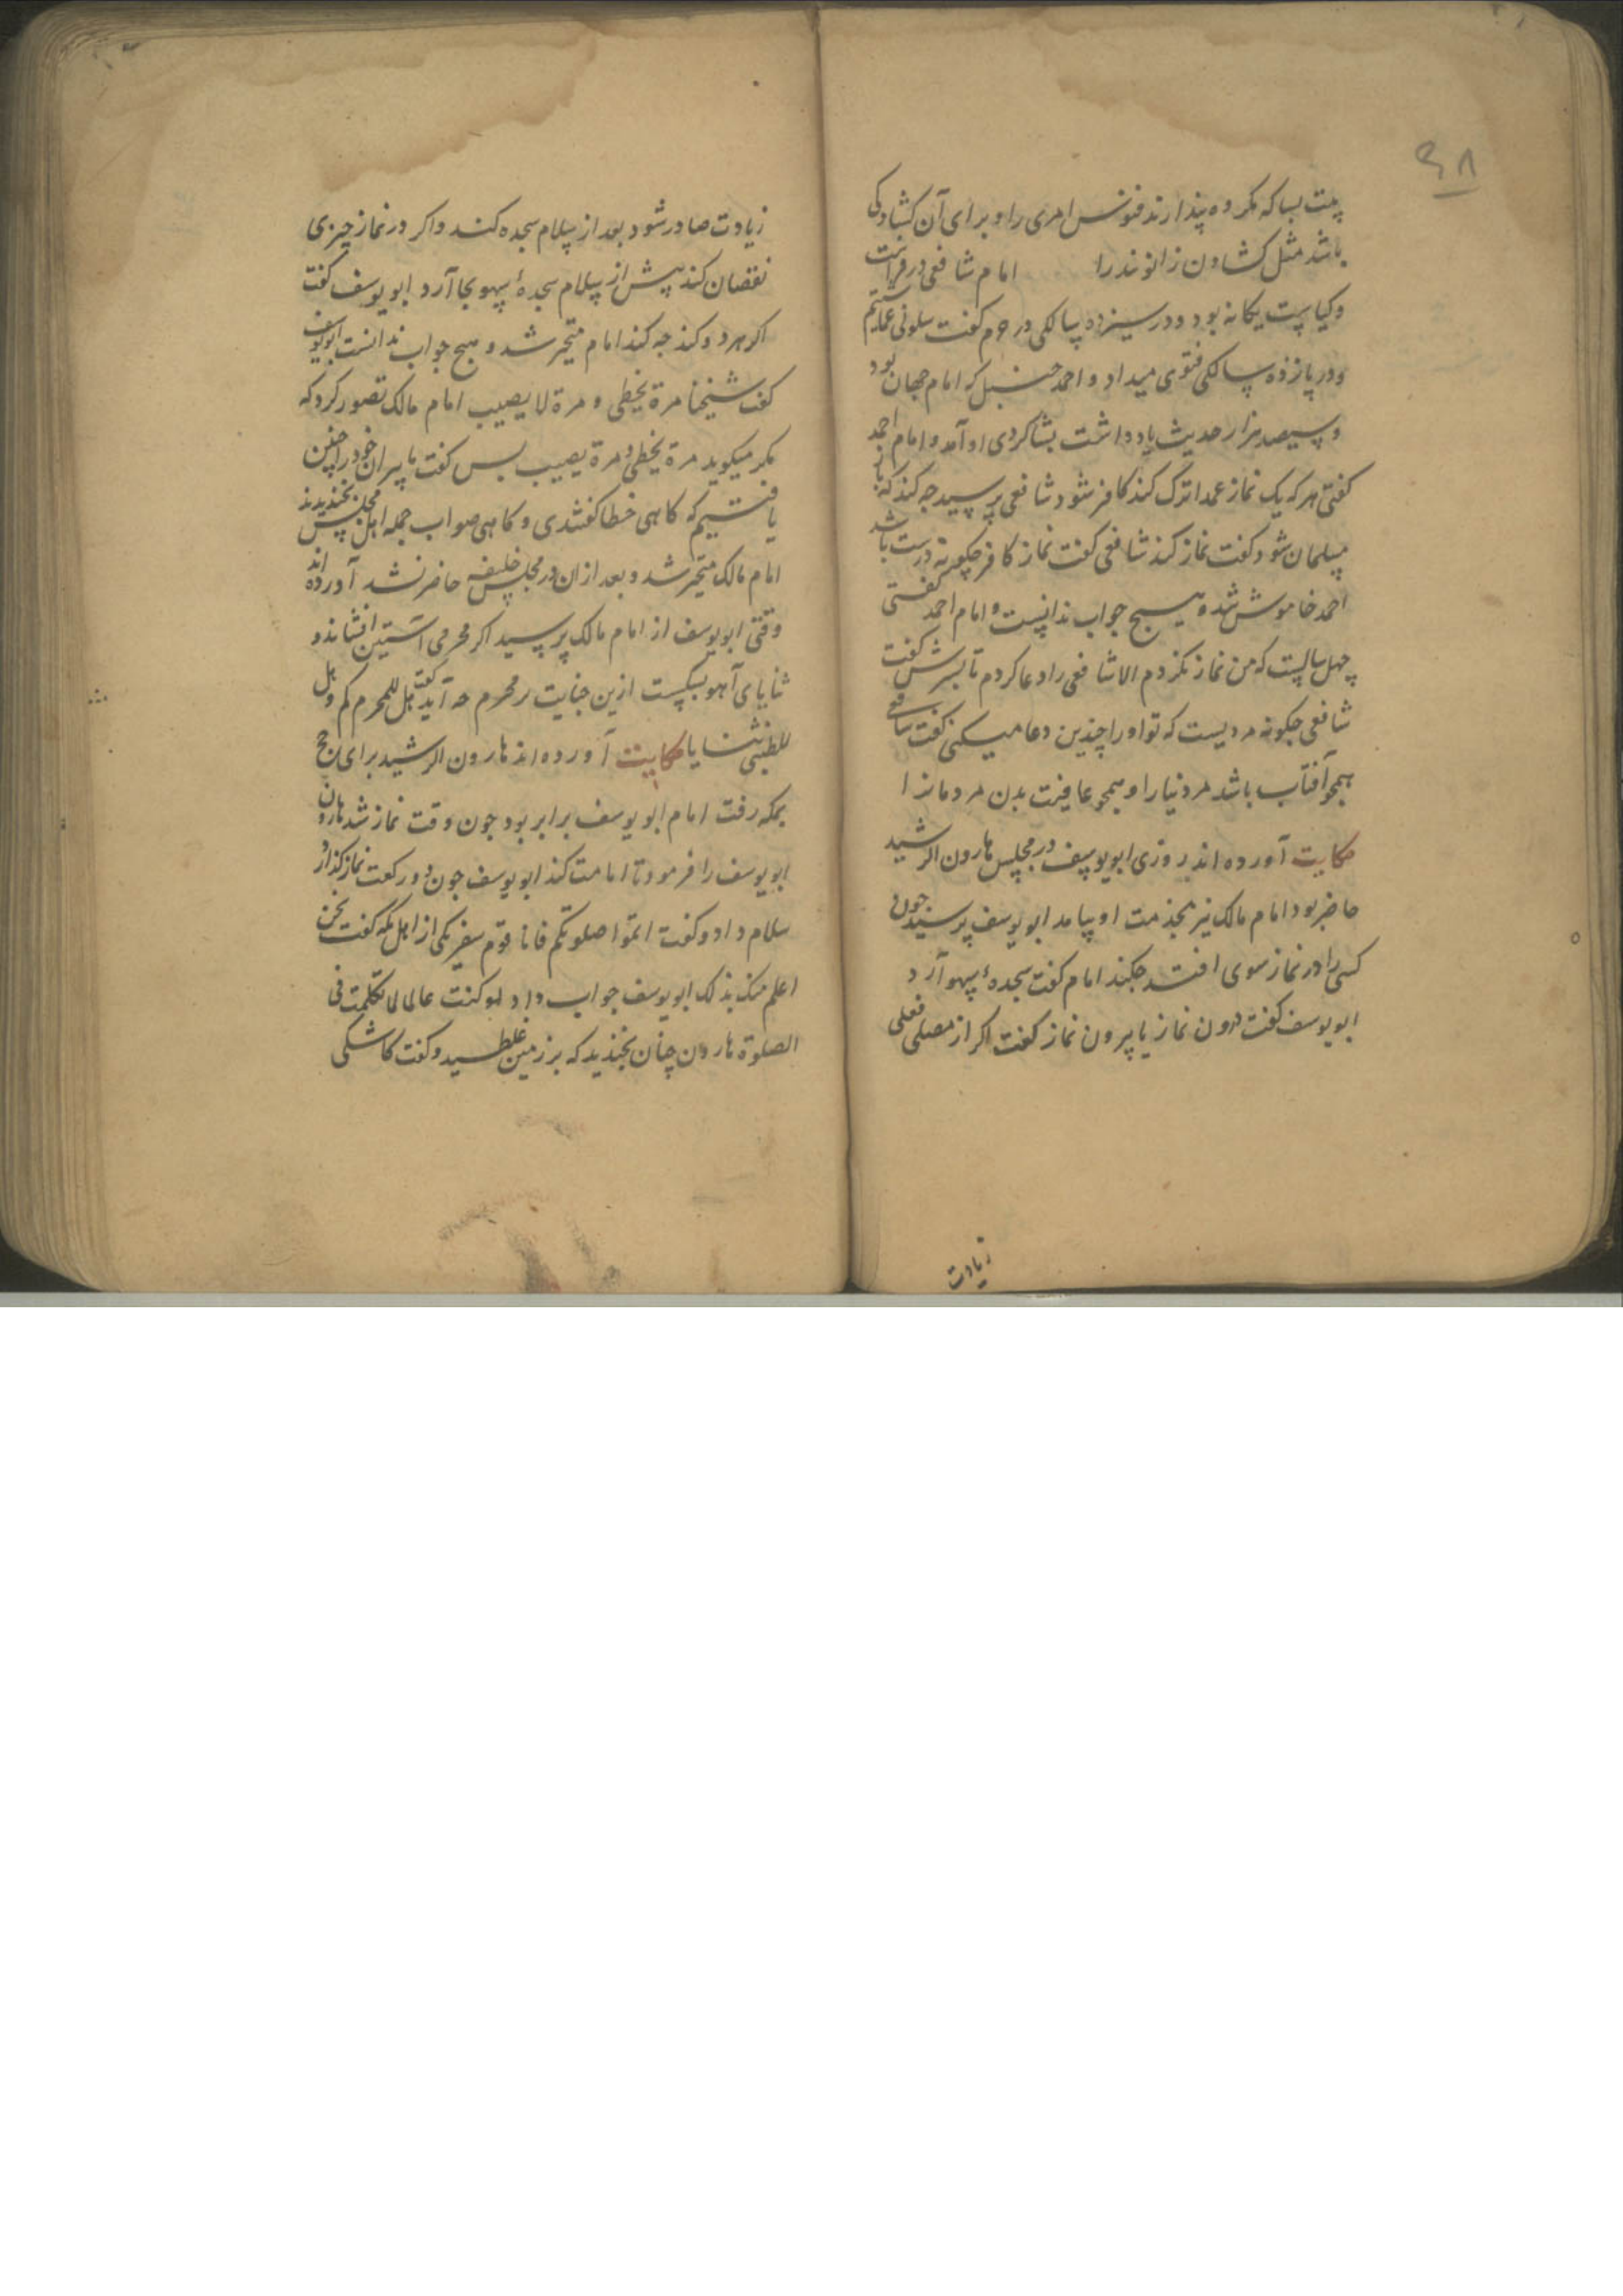 ۴۸
بیت بسا که مکروه پندارند نفوس امری را و برای آن کشادکی
باشد مثل کشادن زانوبند را امام شافعی در فراست
و کیاست یکانه بود و در سیزده سالکی در حرم کفت سلونی عما شئتم
و در پانزده سالکی فتوی میداد و احمد حنبل که امام جهان بود
و سیصد هزار حدیث یاد داشت بشاکردی او آمد و امام احمد
کفتی هر که یک نماز عمدا ترک کند کافر شود شافعی پرسید جه کند که باز
مسلمان شود کفت نماز کند شافعی کفت نماز کافر جکونه درست باشد
احمد خاموش شد و هیچ جواب ندانست و امام احمد کفتی
چهل سالیست که من نماز نکردم الا شافعی را دعا کردم تا پسرش کفت
شافعی جکونه مردیست که تو او را چندین دعا میکنی کفت شافعی
همجو آفتاب باشد مر دنیا را و همجو عافیت بدن مردمانرا
حکایت آورده اند روزی ابو یوسف در مجلس هارون الرشید
حاضر بود امام مالک نیز بخدمت او بیامد ابو یوسف پرسید جون
کسی را در نماز سهوی افتد جکند امام کفت سجدهٔ سهو آرد
ابو یوسف کفت درون نماز یا بیرون نماز کفت اکر از مصلی فعلی
زیادت
زیادت صادر شود بعد از سلام سجده کند و اکر در نماز چیزی
نقصان کند پیش از سلام سجدهٔ سهو بجا آرد ابو یوسف کفت
اکر هر دو کند جه کند امام متحیر شد و هیج جواب ندانست ابو یوسف
کفت شیخنا مرة یخطی و مرة لا یصیب امام مالک تصور کرد که
مکر میکوید مرة یخطی و مرة یصیب بس کفت ما پیران خود را چنین
یافتیم که کاهی خطا کفتندی و کاهی صواب جمله اهل مجلس بخندیدند
امام مالک متحیر شد و بعد از ان در مجلس خلیفه حاضر نشد آورده اند
وقتی ابو یوسف از امام مالک پرسید اکر محرمی آستین افشاند و
ثنایای آهو بشکست ازین جنایت بر محرم جه آید کفت هل للمحرم کم و هل
للظبی ثنایا حکایت آورده اند هارون الرشید برای حج
بمکه رفت امام ابو یوسف برابر بود جون وقت نماز شد هارون
ابو یوسف را فرمود تا امامت کند ابو یوسف جون دو رکعت نماز کذارد
سلام داد و کفت اتموا صلوتکم فانا قوم سفر یکی از اهل مکه کفت نحن
اعلم منک بذلک ابو یوسف جواب داد لو کنت عالما لما تکلمت فی
الصلوة هارون چنان بخندید که بر زمین غلطید و کفت کاشکی